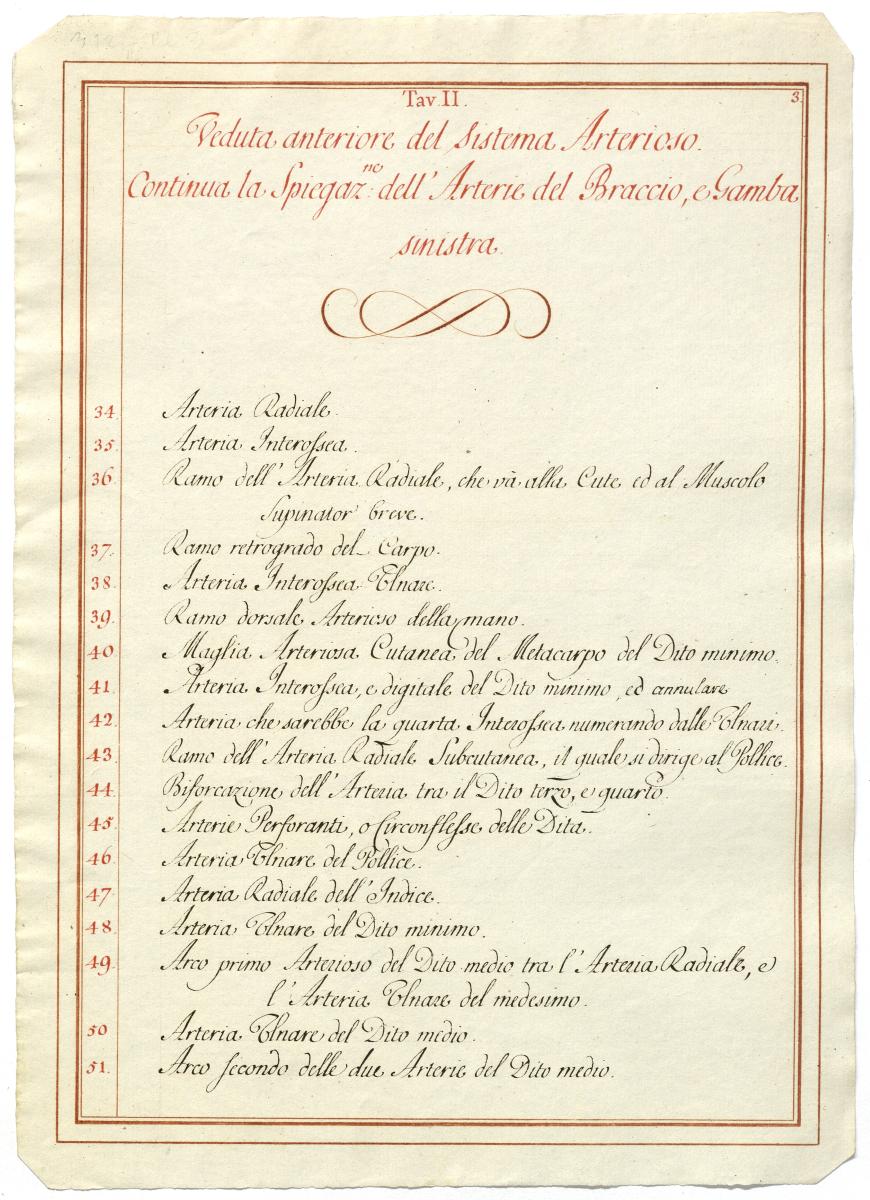 Tav. II.
3.
Veduta anteriore del sistema Arterioso.
Continua la Spiegaz.ne dell'Arterie del Braccio, e Gamba
sinistra.
34. Arteria Radiale.
35. Arteria Interossea.
36. Ramo dell'Arteria Radiale, che và alla Cute ed al Muscolo
Supinator breve.
37. Ramo retrogrado del Carpo.
38. Arteria Interossea Ulnare.
39. Ramo dorsale Arterioso della mano.
40. Maglia Arteriosa Cutanea del Metacarpo del Dito minimo.
41. Arteria Interossea, e digitale del Dito minimo, ed annulare
42. Arteria che sarebbe la quarta Interossea numerando dalle Ulnari.
43. Ramo dell'Arteria Radiale Subcutanea, il quale si dirige al Pollice.
44. Biforcazione dell'Arteria tra il Dito terzo, e quarto.
45. Arterie Perforanti, o Circonflesse delle Dita.
46. Arteria Ulnare del Pollice.
47. Arteria Radiale dell'Indice.
48. Arteria Ulnare del Dito minimo.
49. Arco primo Arterioso del Dito medio tra l'Arteria Radiale, e
l'Arteria Ulnare del medesimo.
50. Arteria Ulnare del Dito medio.
51. Arco secondo delle due Arterie del Dito medio.